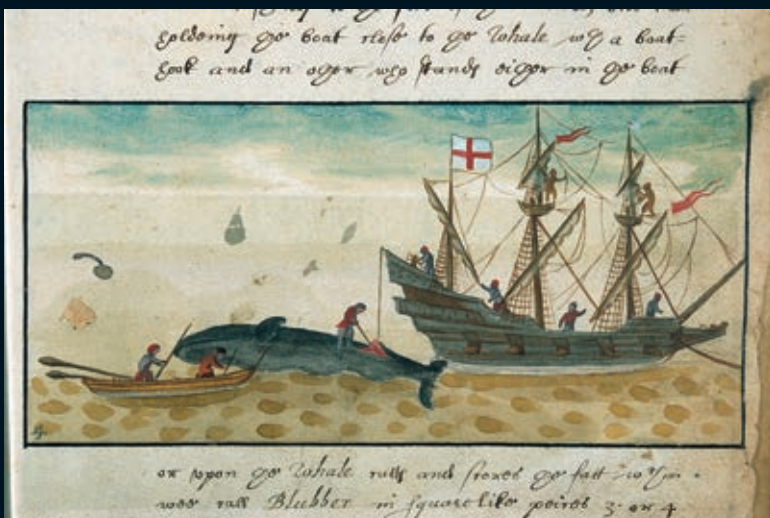 holdeing þe boat close to þe Whale wth a boat=
hook and an oþer who stands eiþer in þe boat
or upon þe Whale cutts and scores þe fatt wch
wee call Blubber in square like peices 3 or 4